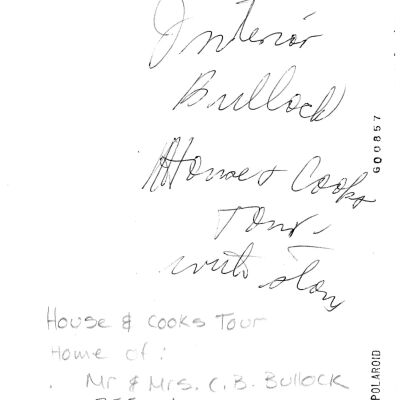 Interior
Bullock
House & Cooks
Tour
with story
House & Cooks Tour
Home of:
Mr & Mrs. C. B. Bullock
G00857
POLAROID